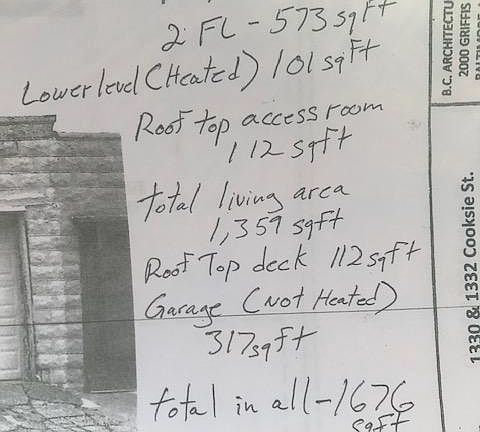 2 FL - 573 sqft
Lower level (Heated) 101 sqft
Roof top access room
112 sqft
total living area
1,359 sqft
Roof Top deck 112 sqft
Garage (Not Heated)
317 sqft
total in all - 1676
sqft
B.C. ARCHITECTU
2000 GRIFFIS
BALTIMORE
1330 & 1332 Cooksie St.